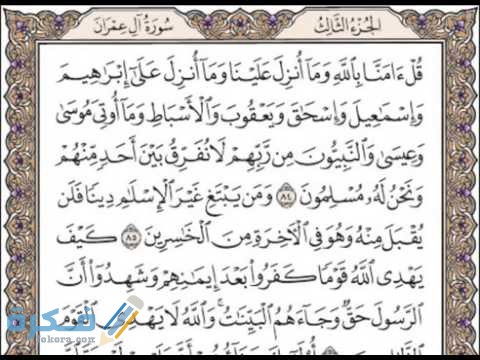 سُورَةُ آلِ عِمْرَان
الجُزْءُ الثَّالِث
قُلْ ءَامَنَّا بِٱللَّهِ وَمَآ أُنزِلَ عَلَيْنَا وَمَآ أُنزِلَ عَلَىٰٓ إِبْرَٰهِيمَ
وَإِسْمَٰعِيلَ وَإِسْحَٰقَ وَيَعْقُوبَ وَٱلْأَسْبَاطِ وَمَآ أُوتِىَ مُوسَىٰ
وَعِيسَىٰ وَٱلنَّبِيُّونَ مِن رَّبِّهِمْ لَا نُفَرِّقُ بَيْنَ أَحَدٍ مِّنْهُمْ
وَنَحْنُ لَهُۥ مُسْلِمُونَ ٨٤ وَمَن يَبْتَغِ غَيْرَ ٱلْإِسْلَٰمِ دِينًا فَلَن
يُقْبَلَ مِنْهُ وَهُوَ فِى ٱلْءَاخِرَةِ مِنَ ٱلْخَٰسِرِينَ ٨٥ كَيْفَ
يَهْدِى ٱللَّهُ قَوْمًا كَفَرُوا۟ بَعْدَ إِيمَٰنِهِمْ وَشَهِدُوٓا۟ أَنَّ
ٱلرَّسُولَ حَقٌّ وَجَآءَهُمُ ٱلْبَيِّنَٰتُ ۚ وَٱللَّهُ لَا يَهْدِى ٱلْقَوْمَ
فكرة
okora.com